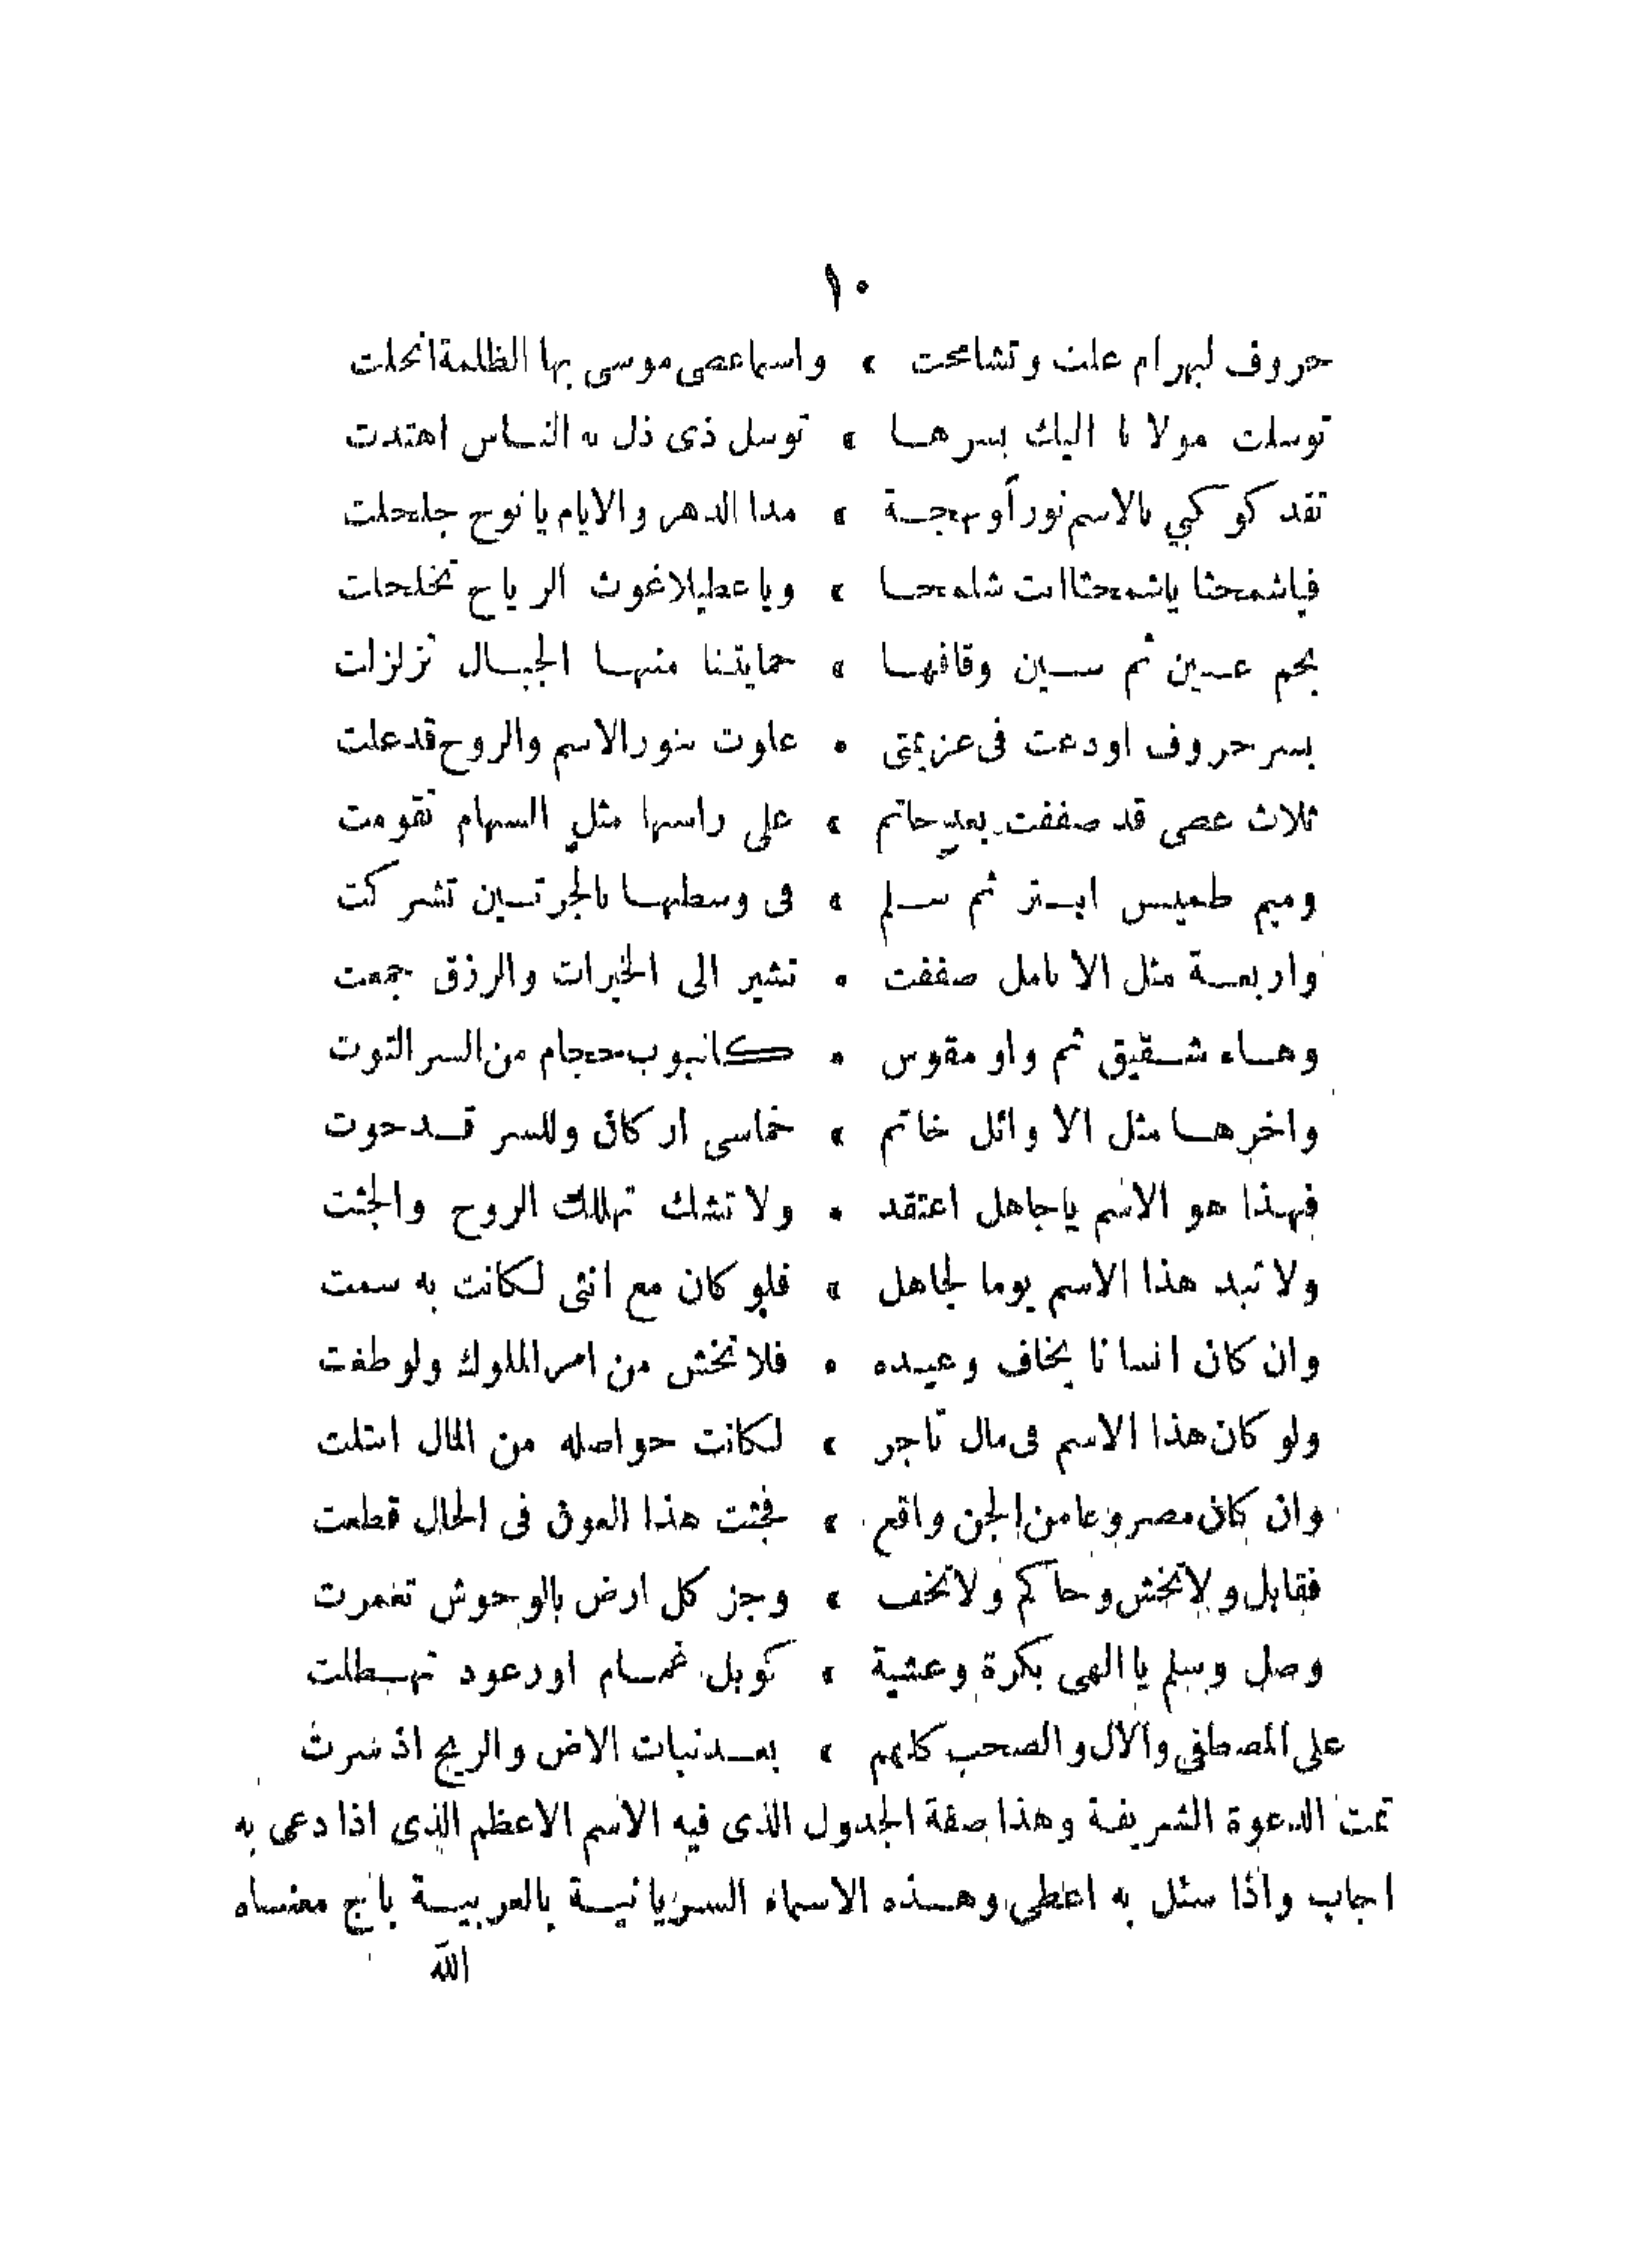 ١٠
حروف لبهرام علت وتشامخت » واسما عصى موسى بها الظلمة انجلت
توسلت مولانا اليك بسرها » توسل ذى ذل به الناس اهتدت
تقد كوكبي بالاسم نوراً وبهجة » مدا الدهر والايام يا نوح جلجلت
فياشمخثا ياشمخثا انت شلمخا » ويا عطيلا غوث الرياح تخلخلت
بحم عين ثم سين وقافها » حمايتنا منها الجبال تزلزلت
بسر حروف اودعت فى عزيمتى • علوت بنور الاسم والروح قد علت
ثلاث عصى قد صففت بعد خاتم » على راسها مثل السهام تقومت
وميم طميس ابتر ثم سلم » فى وسطها بالجرتين تشركت
واربعة مثل الانامل صففت • تشير الى الخيرات والرزق جمعت
وهاء شقيق ثم واو مقوس • كانبوب حجام من السر التوت
واخرها مثل الاوائل خاتم » خماسى اركان وللسر قد حوت
فهذا هو الاسم يا جاهل اعتقد • ولا تشك تهلك الروح والجثت
ولا تبد هذا الاسم يوما لجاهل » فلو كان مع انثى لكانت به سمت
وان كان انسانا يخاف وعيده • فلا تخش من امر الملوك ولو طغت
ولو كان هذا الاسم فى مال تاجر » لكانت حواصله من المال امتلت
وان كان مصروعا من الجن واقع » فجثت هذا العون فى الحال قطعت
فقابل ولا تخش وحاكم ولا تخف » وجز كل ارض بالوحوش تغمرت
وصل وسلم يا الهى بكرة وعشية » كوبل غمام او رعود تهطلت
على المصطفى والآل والصحب كلهم » بعد نبات الاض والريح اذ سرت
تمت الدعوة الشريفة وهذا صفة الجدول الذى فيه الاسم الاعظم الذى اذا دعى به
اجاب واذا سئل به اعطى وهذه الاسماء السريانية بالعربية باخ معناه
الله